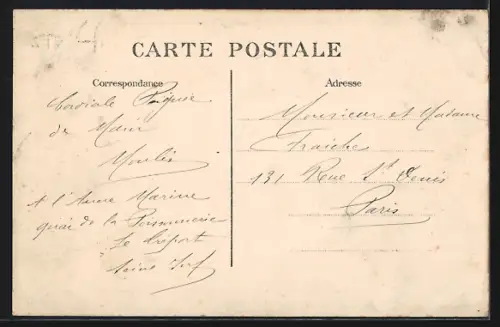 CARTE POSTALE
Correspondance
Cordiale Poignée
de Main
Moulin
A l'Ancre Marine
quai de la Poissonnerie
Le Tréport
Seine Inf
Adresse
Monsieur et Madame
Fraiche
131 Rue St Denis
Paris